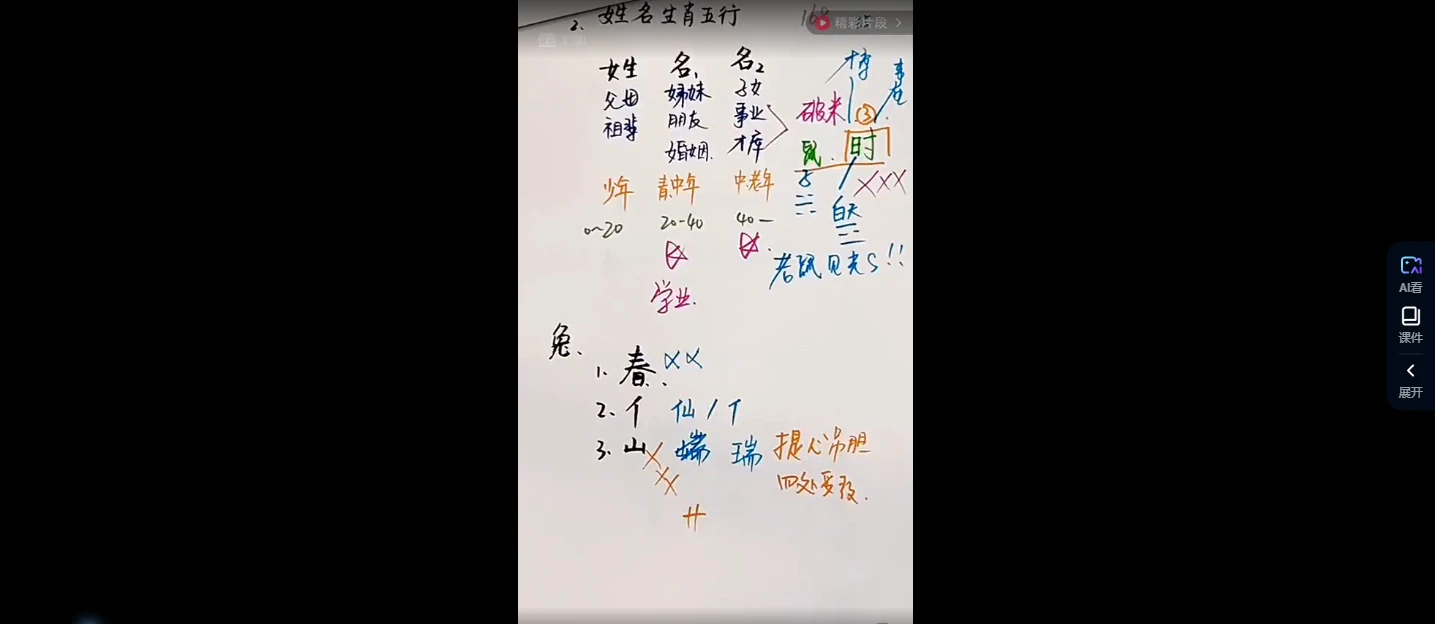 2. 姓名生肖五行
精彩片段
女生 名1 名2
父母 姊妹 子女
祖辈 朋友 事业
婚姻. 才库
少年 青中年 中老年
0~20 20-40 40—
学业.
破米 ③
鼠. 时
子 XXX
白天
老鼠见光S!!
兔、
1. 春. XX
2. 个 仙 / 个
3. 山 X 瑞 提心吊胆
XX 四处受
AI看
课件
展开